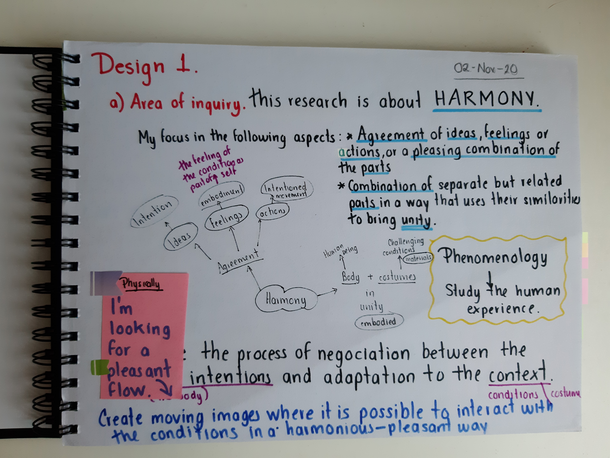 Design 1.
02-Nov-20
a) Area of inquiry. This research is about HARMONY.
My focus in the following aspects: * Agreement of ideas, feelings or
actions, or a pleasing combination of
the parts
* Combination of separate but related
parts in a way that uses their similarities
to bring unity.
the feeling of
the condition as
part of self
Intention
embodiment
Intentioned
movement
Ideas
feelings
actions
Agreement
Harmony
Human
being
Challenging
conditions
materials
Body + costumes
in
unity
embodied
Phenomenology
Study the human
experience.
Physically
I'm
looking
for a
pleasant
flow.
: the process of negociation between the
intentions and adaptation to the context.
body)
conditions
costume
Create moving images where it is possible to interact with
the conditions in a harmonious-pleasant way